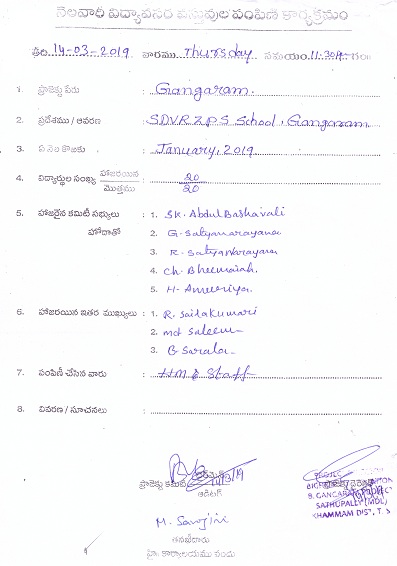 నెలవారీ విద్యావసర వస్తువుల పంపిణీ కార్యక్రమం
తేది 14-03-2019 వారము Thursday సమయం 11:30గ
1. ప్రాజెక్టు పేరు : Gangaram.
2. ప్రదేశము / ఆవరణ : SDVR ZPS School, Gangaram
3. ఏ నెల కొఱకు : January, 2019.
4. విద్యార్థుల సంఖ్య హాజరయిన/మొత్తము : 20/20
5. హాజరైన కమిటీ సభ్యులు : 1. SK. Abdul Bashavali
హోదాతో 2. G. Satyanarayana
3. R. Satyanarayana
4. Ch. Bheemaiah.
5. H. Ameeriya.
6. హాజరయిన ఇతర ముఖ్యులు : 1. R. Sailakumari
2. md Saleem
3. G Sarala
7. పంపిణీ చేసిన వారు : HM & Staff
8. వివరణ / సూచనలు :
ప్రాజెక్టు కమిటీ
ఆడిటర్
B. GANGARAM PROJECT
SATHUPALLY (MDL)
KHAMMAM DIST., T.S
M. Sanjini
తనఖీదారు
హై. కార్యాలయము నందు